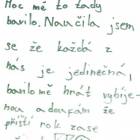 Moc mě to tady
bavilo. Naučila jsem
se že každá z
nás je jedinečná,
bavilo mě hrát vybíje-
nou a doufám že
příští rok zase